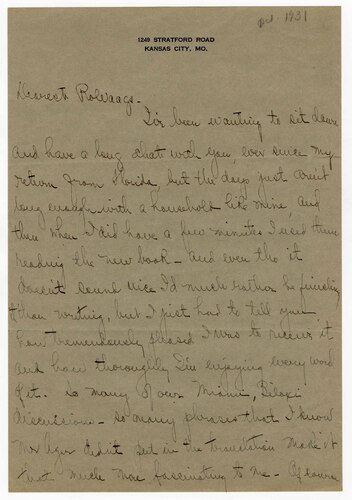 1931
1249 STRATFORD ROAD
KANSAS CITY, MO.
Dearest Rolvaags -
I've been wanting to sit down
and have a long chat with you, ever since my
return from Florida, but the days just aren't
long enough with a household like mine, and
then when I did have a few minutes I used them
reading the new book - and even tho it
doesn't sound nice I'd much rather be finishing
than writing, but I just had to tell you
how tremendously pleased I was to receive it
and how thoroughly I'm enjoying every word
of it. So many of our Miami, Biloxi
discussions - so many phrases that I know
Mr Ager didn't put in the translation make it
that much more fascinating to me. Of course